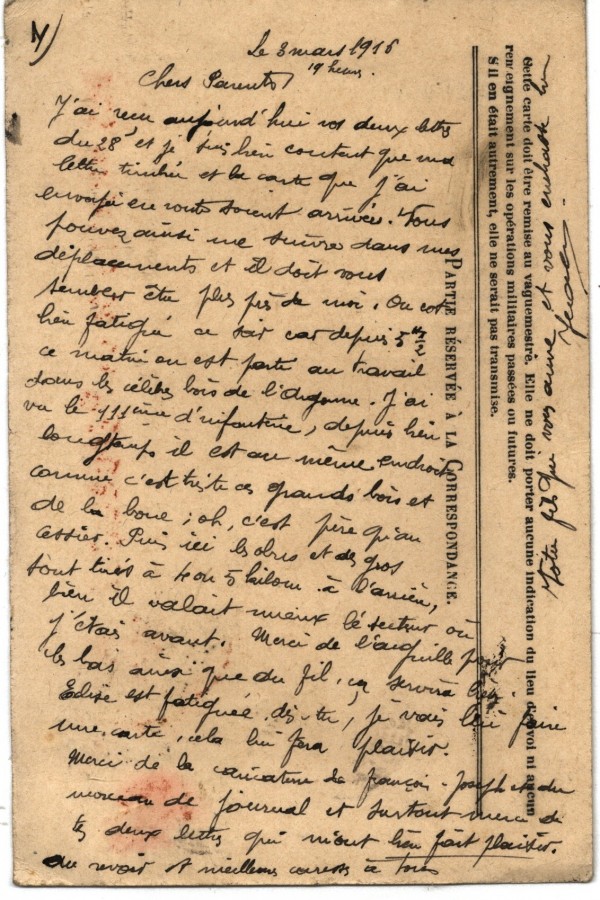 Le 3 mars 1916
19 heures.
Chers Parents
J'ai reçu aujourd'hui vos deux lettres
du 28 et je suis bien content que ma
lettre timbrée et la carte que j'ai
envoyée en route soient arrivées. Vous
pouvez ainsi me suivre dans mes
déplacements et il doit vous
sembler être plus près de moi. On est
bien fatigué ce soir car depuis 5 h 1/2
ce matin on est parti au travail
dans les célèbres bois de l'Argonne. J'ai
vu le 111ème d'infanterie, depuis bien
longtemps il est au même endroit
comme c'est triste ces grands bois et
de la boue ; oh, c'est pire qu'au
Puis ici les obus et des gros
sont tirés à 4 ou 5 kilom. à l'arrière,
bien il valait mieux le secteur où
j'étais avant. Merci de l'aiguille pour
les bas ainsi que du fil, ça servira bien.
Elise est fatiguée dis-tu, je vais lui faire
une carte, cela lui fera plaisir.
Merci de la caricature de françois-Joseph et du
morceau de journal et surtout merci de
tes deux lettres qui m'ont bien fait plaisir.
au revoir et meilleures caresses à tous
Votre fils qui vous aime et vous embrasse
PARTIE RÉSERVÉE À LA CORRESPONDANCE.
Cette carte doit être remise au vaguemestre. Elle ne doit porter aucune indication du lieu d'envoi ni aucun
renseignement sur les opérations militaires passées ou futures.
S'il en était autrement, elle ne serait pas transmise.